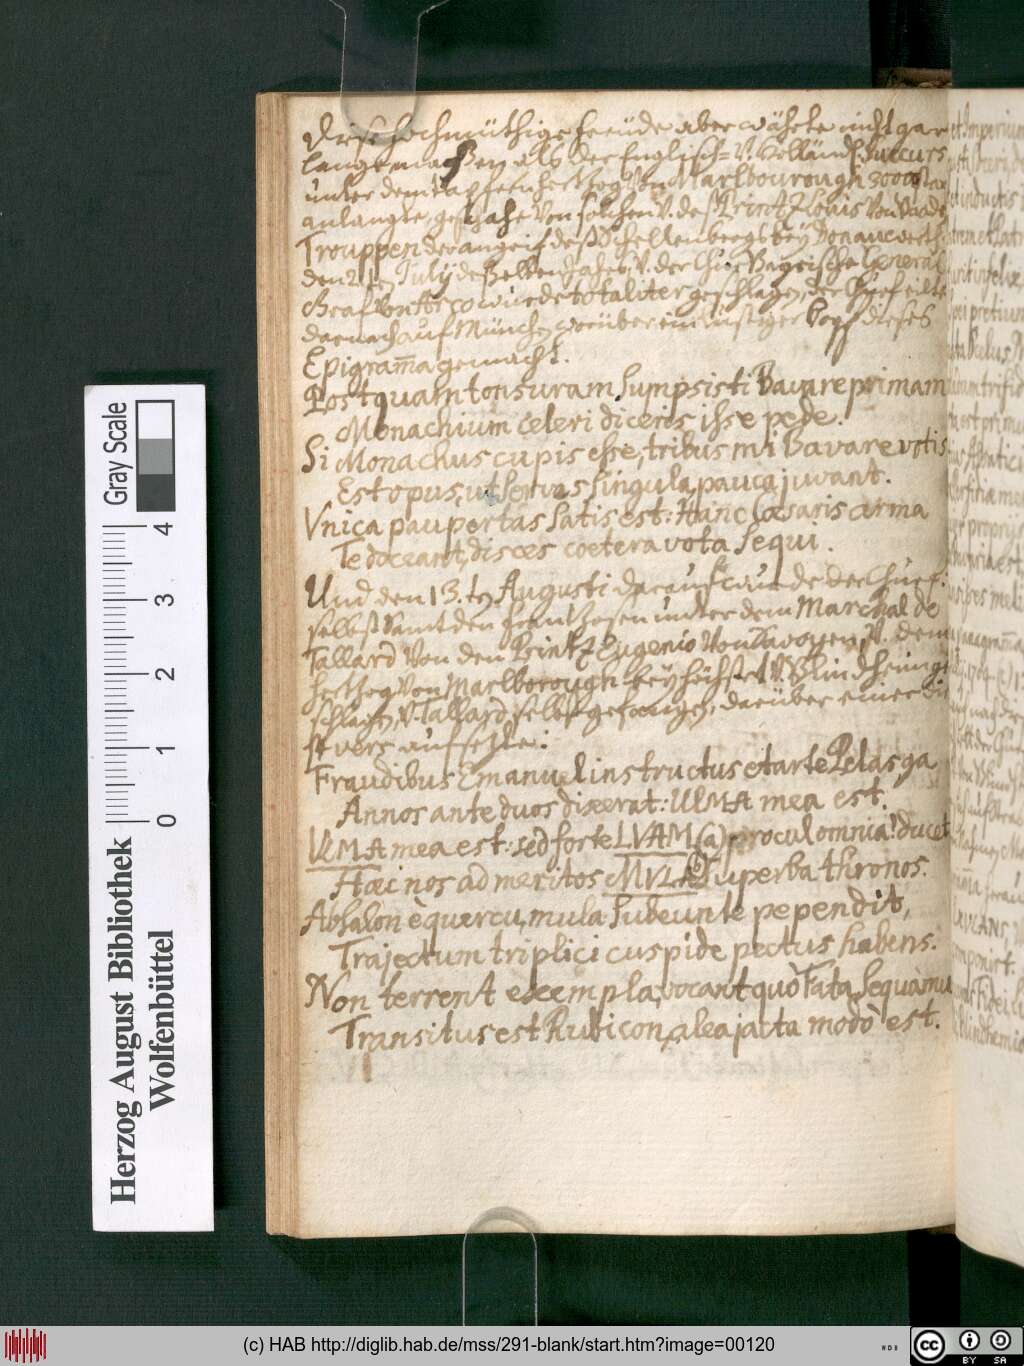 Diese hochmüthige freüde aber währte nicht gar
lange maßen als der Englisch= V. Holländ. Succurs
unter dem tapfern hertzog von Marlbourough 30000
anlangte, geschahe von solchen V. des Printz Louis von Baade
Trouppen der angrif deß Schellenbergs bey Donauwerth
den 2ten July deßelben Jahrs, V. der Chur Bayrische General
Graf von Arco wurde totaliter geschlagen, der Churf. eilte
darnach auf München worüber ein lustiger Kopf dieses
Epigram̄a gemacht.
Postquam tonsuram sumpsisti Bavare primam
Monachium celeri diceris isse pede.
Si Monachus cupis esse, tribus mi Bavare votis
Est opus, ut serves singula, pauca juvant.
Vnica paupertas satis est: Hanc Cæsaris arma
Te doceant, disces coetera vota sequi.
Und den 13.ten Augusti darauf wurde der Churf.
selbst samt den frantzosen unter dem Marchal de
Tallard von den Printz Eugenio von Savoyen, V. dem
hertzog von Marlborough bey Höchstet V. Blindheim ge
schlagen, V. Tallard selbst gefangen, darüber einer di
se vers aufsetzte:
Fraudibus Emanuel instructus et arte Pelasga
Annos ante duos dixerat: ULMA mea est.
VLMA mea est: sed forte LVAM (a) procul omnia! ducet
Hæc nos ad meritos MVLA superba thronos.
Absalon è quercu, mula subeunte pependit,
Trajectum triplici cuspide pectus habens.
Non terrent exempla, vocant quò Fata sequamur
Transitus est Rubicon, alea jacta modò est.
Gray Scale
0 1 2 3 4
Herzog August Bibliothek
Wolfenbüttel
(c) HAB http://diglib.hab.de/mss/291-blank/start.htm?image=00120
WDB
cc BY SA